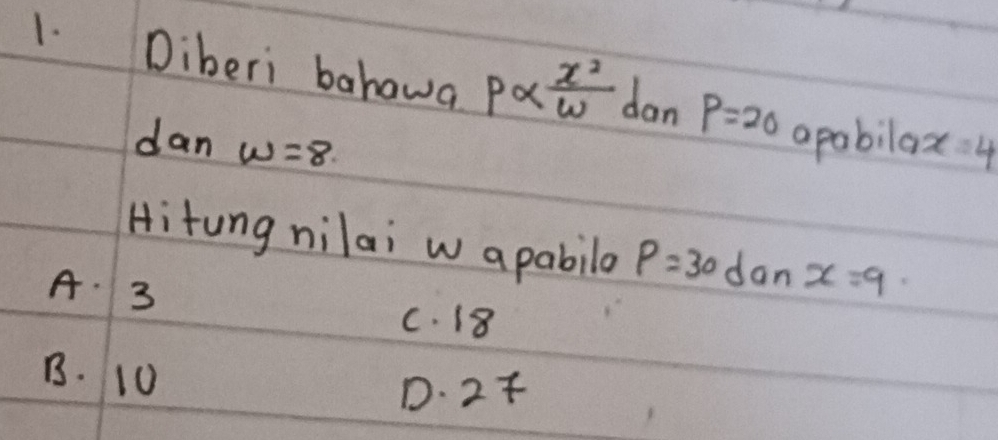 1. Diberi bahawa P∝x²/w dan P=20 apabila x=4
dan w=8.
Hitung nilai w apabila P=30 dan x=9.
A. 3 C. 18
B. 10 D. 27